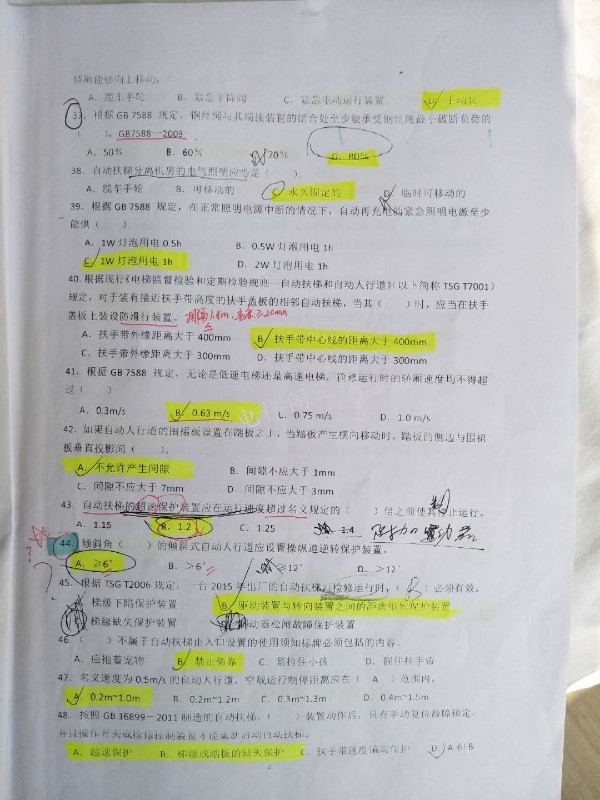 轿厢能够向上移动。
A. 缆车手轮 B. 紧急下降阀 C. 紧急电动运行装置 D. 手动泵
37. 根据 GB 7588 规定，钢丝绳与其端接装置的结合处至少能承受钢丝绳最小破断负荷的
（ ）。GB7588—2003
A. 50% B. 60% 70% D. 80%
38. 自动扶梯分离机房的电气照明应当是（ ）。
A. 缆车手轮 B. 可移动的 C. 永久固定的 D. 临时可移动的
39. 根据 GB 7588 规定，在正常照明电源中断的情况下，自动再充电的紧急照明电源至少
能供（ ）
A. 1W 灯泡用电 0.5h B. 0.5W 灯泡用电 1h
C. 1W 灯泡用电 1h D. 2W 灯泡用电 1h
40. 根据现行《电梯监督检验和定期检验规则—自动扶梯和自动人行道》（以下简称 TSG T7001）
规定，对于装有接近扶手带高度的扶手盖板的相邻自动扶梯，当其（ ）时，应当在扶手
盖板上装设防滑行装置。
A. 扶手带外缘距离大于 400mm B. 扶手带中心线的距离大于 400mm
C. 扶手带外缘距离大于 300mm D. 扶手带中心线的距离大于 300mm
41. 根据 GB 7588 规定，无论是低速电梯还是高速电梯，检修运行时的轿厢速度均不得超
过（ ）
A. 0.3m/s B. 0.63 m/s C. 0.75 m/s D. 1.0 m/s
42. 如果自动人行道的围裙板设置在踏板之上，当踏板产生横向移动时，踏板的侧边与围裙
板垂直投影间（ ）。
A. 不允许产生间隙 B. 间隙不应大于 1mm
C. 间隙不应大于 7mm D. 间隙不应大于 3mm
43. 自动扶梯的超速保护装置应在运行速度超过名义规定的（ ）倍之前使其停止运行。
A. 1.15 B. 1.2 C. 1.25 1.4
44. 倾斜角（ ）的倾斜式自动人行道应设置操纵逆转保护装置。
A. ≥6° B. >6° ≥12° D. >12°
45. 根据 TSG T2006 规定，一台 2015 年出厂的自动扶梯，检修运行时，（ B ）必须有效。
梯级下陷保护装置 B. 驱动装置与转向装置之间的距离缩短保护装置
梯级缺失保护装置 动器松闸故障保护装置
46. （ ）不属于自动扶梯出入口设置的使用须知标牌必须包括的内容。
A. 应抱着宠物 B. 禁止倚靠 C. 紧拉住小孩 D. 握住扶手带
47. 名义速度为 0.5m/s 的自动人行道，空载运行制停距离应在（ A ）范围内。
A. 0.2m~1.0m B. 0.2m~1.2m C. 0.3m~1.3m D. 0.4m~1.5m
48. 按照 GB 16899－2011 制造的自动扶梯，（ ）装置动作后，只有手动复位故障锁定，
并且操作开关或检修控制装置才能重新启动自动扶梯。
A. 超速保护 B. 梯级或踏板的缺失保护 C. 扶手带速度偏离保护 D. A 和 B